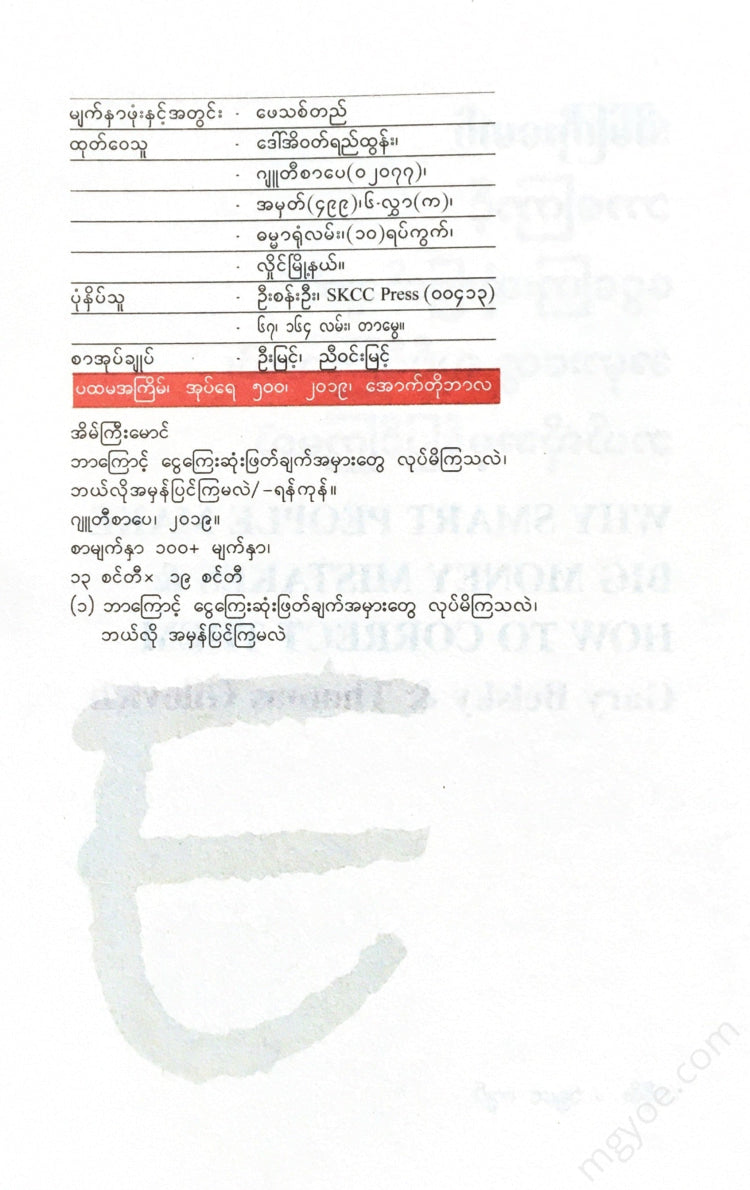 မျက်နှာဖုံးနှင့်အတွင်း - ဖေသစ်တည်
ထုတ်ဝေသူ - ဒေါ်အိဝတ်ရည်ထွန်း၊
- ဂျူတီစာပေ(၀၂၀၇၇)၊
- အမှတ်(၄၉၉)၊၆-လွှာ(က)၊
- ဓမ္မာရုံလမ်း၊(၁၀)ရပ်ကွက်၊
- လှိုင်မြို့နယ်။
ပုံနှိပ်သူ - ဦးစန်းဦး၊ SKCC Press (၀၀၄၁၃)
- ၆၇၊ ၁၆၄ လမ်း၊ တာမွေ။
စာအုပ်ချုပ် - ဦးမြင့်၊ ညီဝင်းမြင့်
ပထမအကြိမ်၊ အုပ်ရေ ၅၀၀၊ ၂၀၁၉၊ အောက်တိုဘာလ
အိမ်ကြီးမောင်
ဘာကြောင့် ငွေကြေးဆုံးဖြတ်ချက်အမှားတွေ လုပ်မိကြသလဲ၊
ဘယ်လိုအမှန်ပြင်ကြမလဲ/ –ရန်ကုန်။
ဂျူတီစာပေ၊ ၂၀၁၉။
စာမျက်နှာ ၁၀၀+ မျက်နှာ၊
၁၃ စင်တီ× ၁၉ စင်တီ
(၁) ဘာကြောင့် ငွေကြေးဆုံးဖြတ်ချက်အမှားတွေ လုပ်မိကြသလဲ၊
ဘယ်လို အမှန်ပြင်ကြမလဲ
mgyoe.com